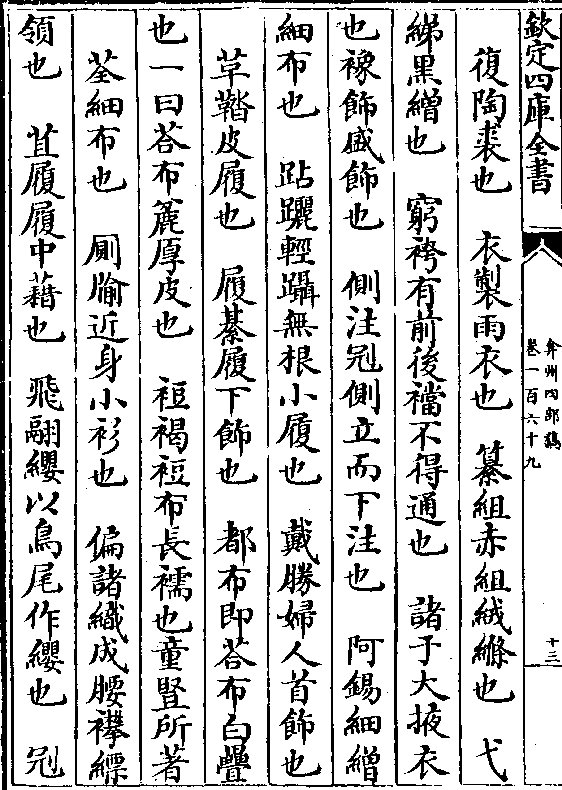 欽定四庫全書
弇州四部稿
卷一百六十九
十三
復陶裘也　衣製雨衣也　纂組赤組絨絛也　弋
綈黒繒也　窮袴有前後襠不得通也　諸于大掖衣
也襐飾盛飾也　側注冠側立而下注也　阿錫細繒
細布也　跕躧輕躡無根小履也　戴勝婦人首飾也
草鞜皮履也　履綦履下飾也　都布即荅布白疊
也一曰荅布麄厚皮也　裋褐裋布長襦也童豎所著
荃細布也　厠牏近身小衫也　偏諸織成腰襻縹
領也　苴履履中藉也　飛翮纓以鳥尾作纓也　冠